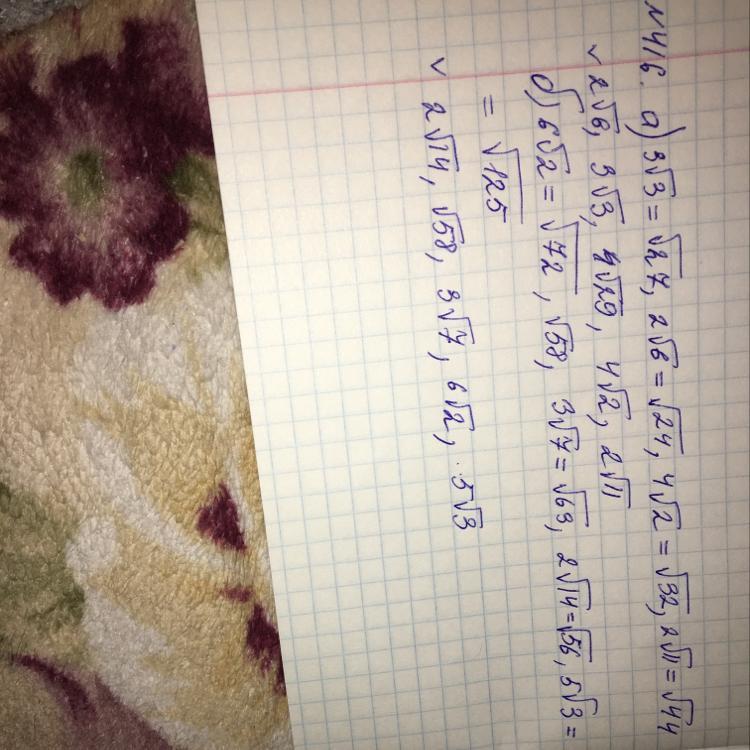 N416. а) 3√3 = √27, 2√6 = √24, 4√2 = √32, 2√11 = √44
v 2√6, 3√3, √29, 4√2, 2√11
б) 6√2 = √72, √58, 3√7 = √63, 2√14 = √56, 5√3 =
= √125
v 2√14, √58, 3√7, 6√2, 5√3